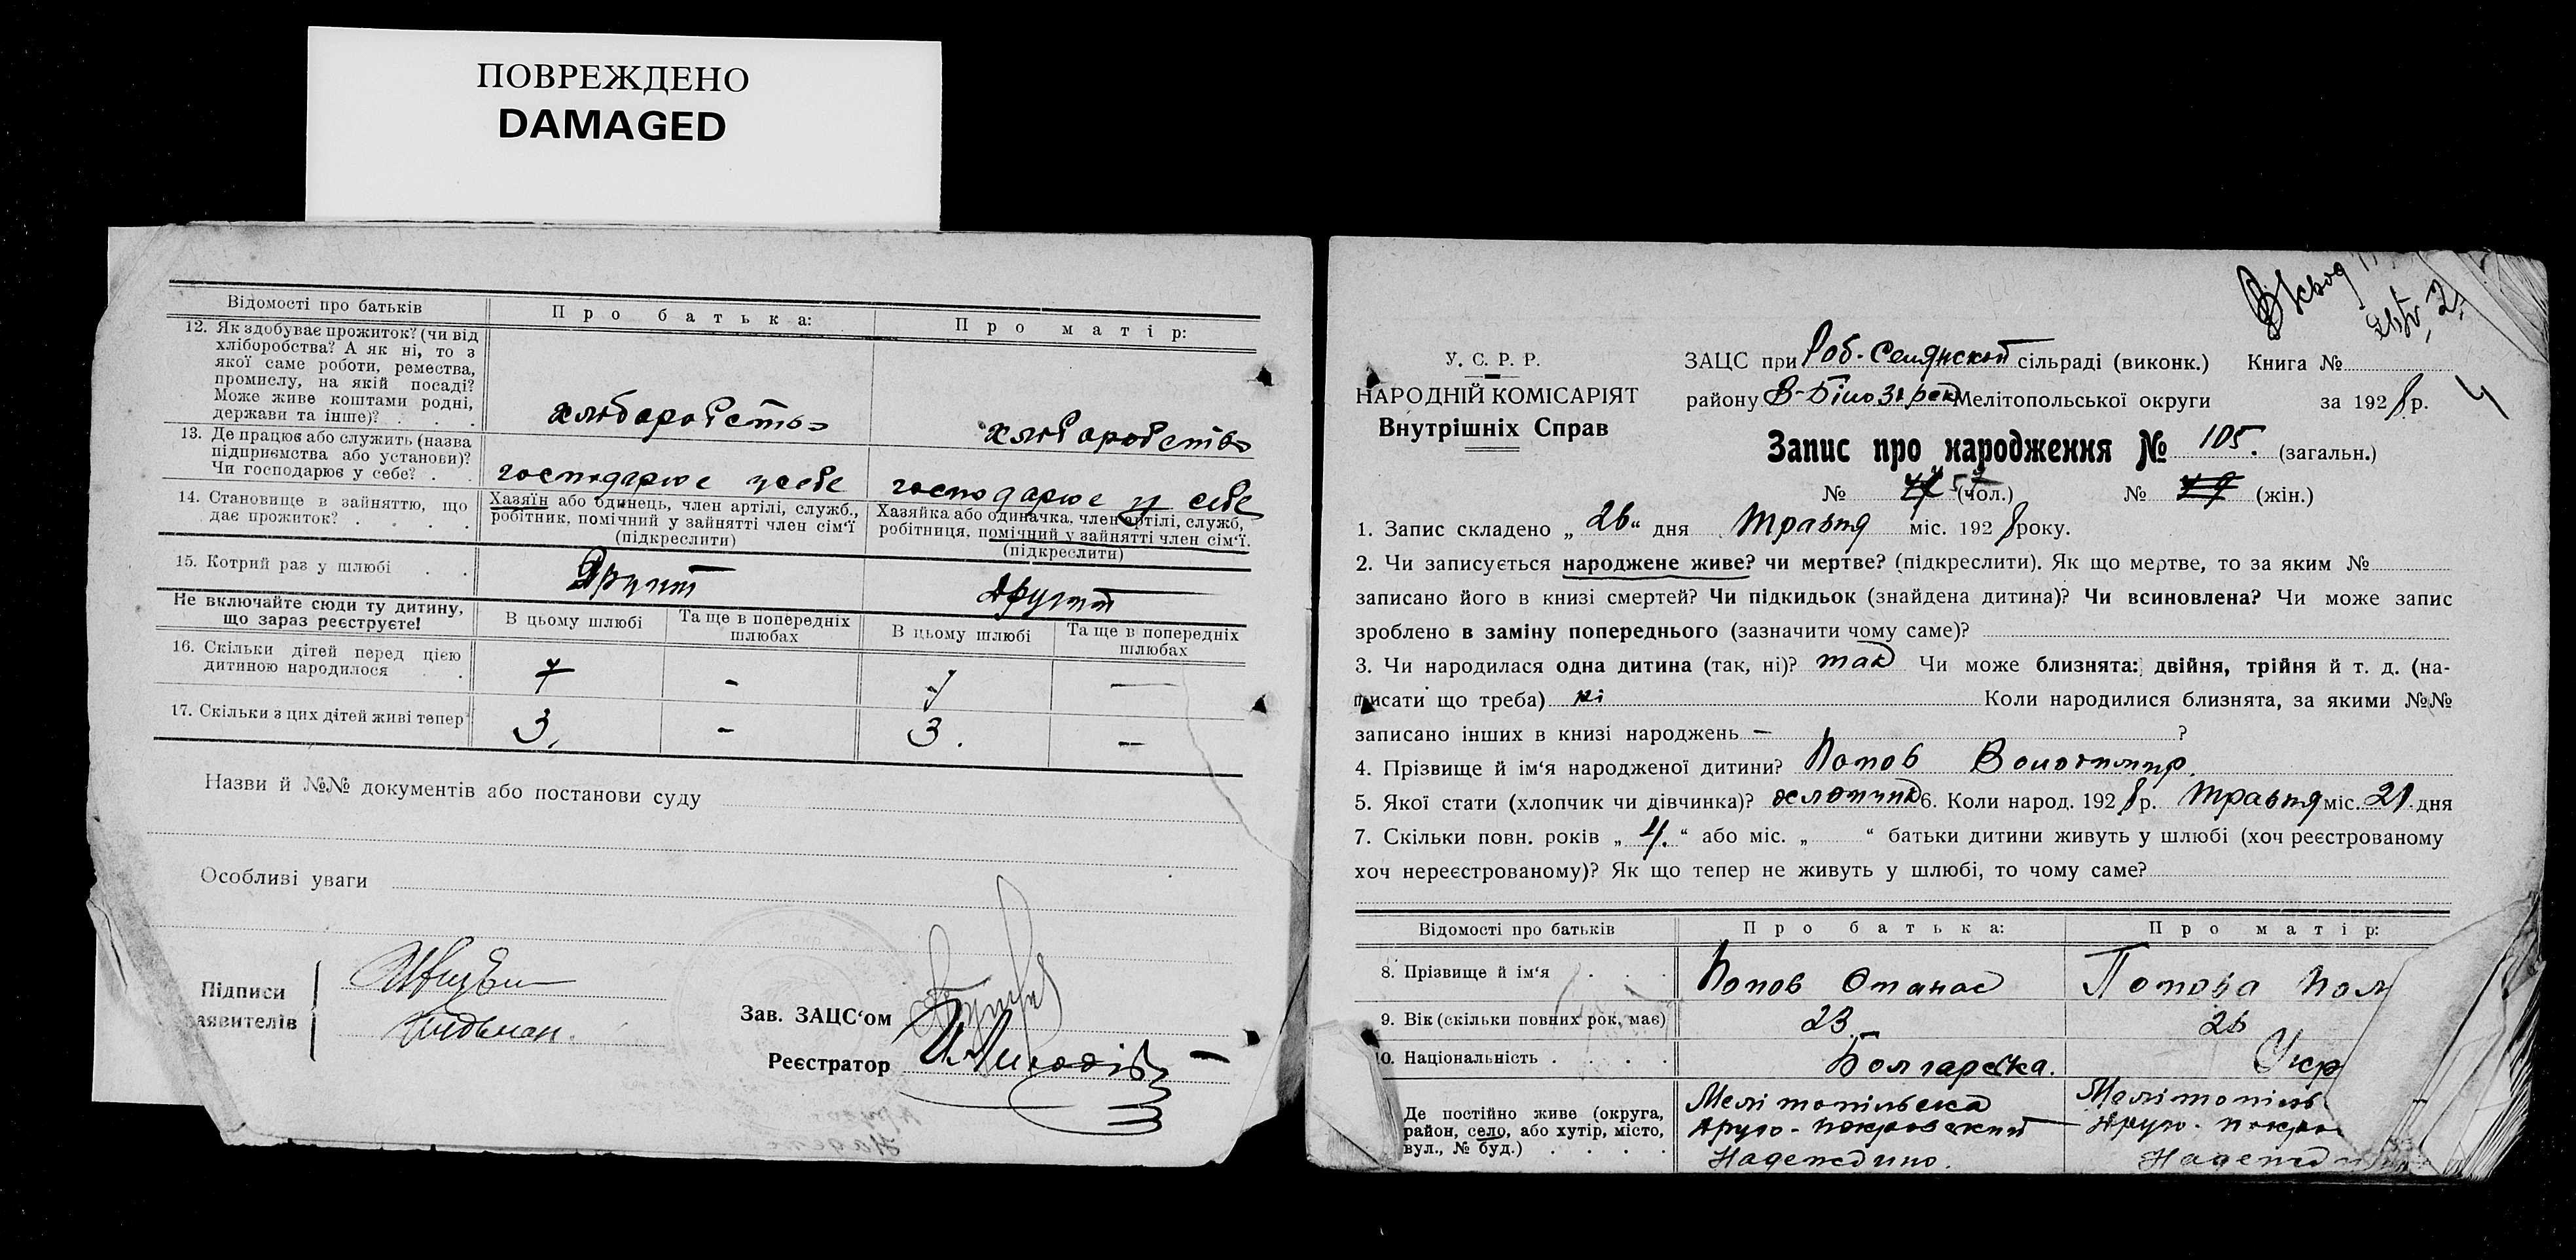 ПОВРЕЖДЕНО
DAMAGED
Відомості про батьків
Про батька:
Про матір:
12. Як здобуває прожиток? (чи від
хліборобства? А як ні, то з
якої саме роботи, ремества,
промислу, на якій посаді?
Може живе коштами родні,
держави та інше)? . . .
хліборобство
хліборобство
13. Де працює або служить (назва
підприємства або установи)?
Чи господарює у себе? . .
господарює у себе
господарює у себе
14. Становище в зайняттю, що
дає прожиток? . . . .
Хазяїн або одинець, член артілі, служб.,
робітник, помічний у зайнятті член сім'ї
(підкреслити)
Хазяйка або одиначка, член артілі, служб,
робітниця, помічний у зайнятті член сім'ї.
(підкреслити)
15. Котрий раз у шлюбі . .
Другий
другий
Не включайте сюди ту дитину,
що зараз реєструєте!
В цьому шлюбі
Та ще в попередніх
шлюбах
В цьому шлюбі
Та ще в попередніх
шлюбах
16. Скільки дітей перед цією
дитиною народилося . .
- —
17. Скільки з цих дітей живі тепер
3. - 3. —
Назви й №№ документів або постанови суду
Особливі уваги
Підписи
заявителів
Зав. ЗАЦС'ом
Реєстратор
У. С. Р. Р.
НАРОДНІЙ КОМІСАРІЯТ
Внутрішніх Справ
ЗАЦС при Роб-Селянской сільраді (виконк.) Книга №
району В-Білозірск Мелітопольської округи за 1928 р.
Запис про народження № 105. (загальн.)
№ (чол.) № (жін.)
1. Запис складено „26“ дня Травня міс. 1928 року.
2. Чи записується народжене живе? чи мертве? (підкреслити). Як що мертве, то за яким №
записано його в книзі смертей? Чи підкидьок (знайдена дитина)? Чи всиновлена? Чи може запис
зроблено в заміну попереднього (зазначити чому саме)?
3. Чи народилася одна дитина (так, ні)? так Чи може близнята: двійня, трійня й т. д. (на-
писати що треба) ні Коли народилися близнята, за якими №№
записано інших в книзі народжень — ?
4. Прізвище й ім'я народженої дитини? Попов Володимир.
5. Якої стати (хлопчик чи дівчинка)? хлопчик 6. Коли народ. 1928 р. Травня міс. 21 дня
7. Скільки повн. років „4.“ або міс. „ “ батьки дитини живуть у шлюбі (хоч реєстрованому
хоч нереєстрованому)? Як що тепер не живуть у шлюбі, то чому саме?
Відомості про батьків
Про батька:
Про матір:
8. Прізвище й ім'я . . .
Попов Опанас
Попова Пол
9. Вік (скільки повних рок. має)
23.
26
10. Національність . . . .
Болгарська.
Укр
Де постійно живе (округа,
район, село, або хутір, місто,
вул., № буд.) . . . .
Мелітопільська
Друго-Покровский
Надеждино.
Мелітопіль
Друго-покро
Надежди